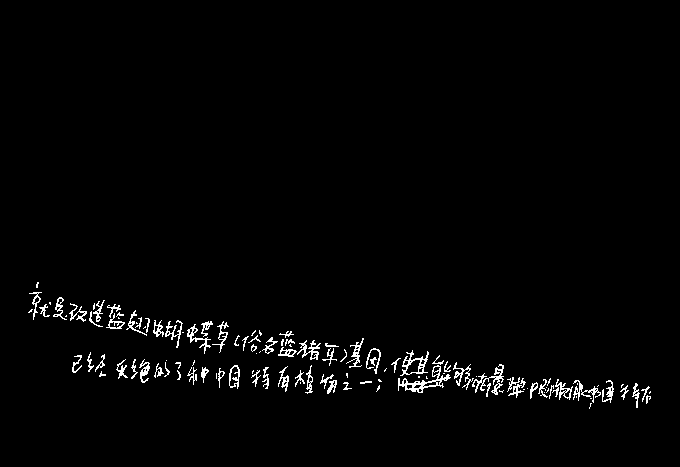 就是改造蓝翅蝴蝶草(俗名蓝猪耳)基因,使其能够
已经灭绝的了种中国特有植物之一;